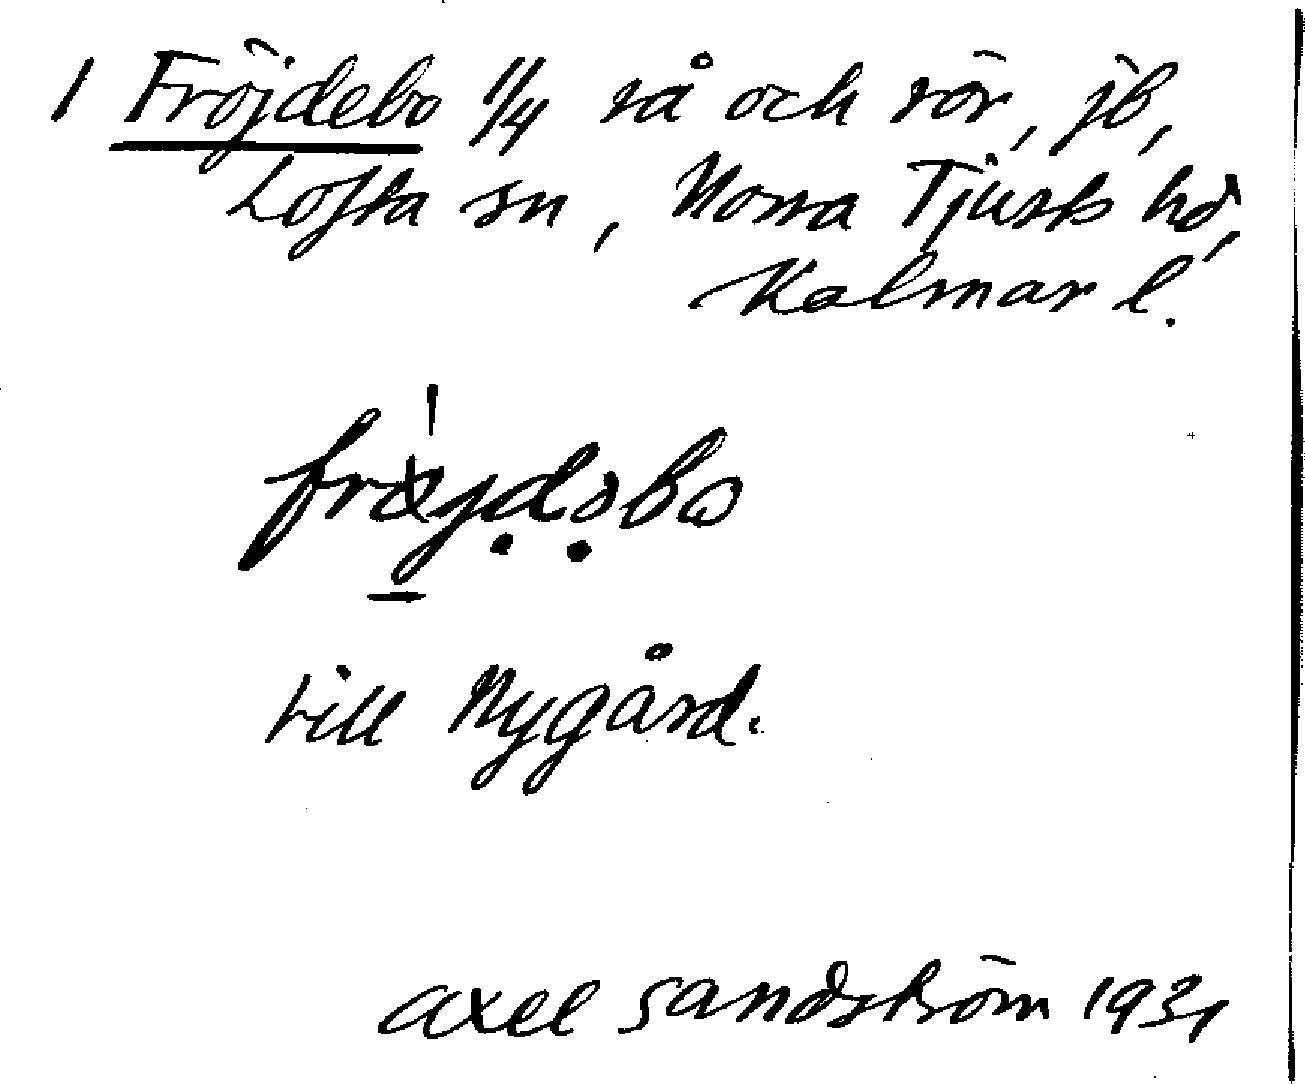 1 Fröjdebo 1/4 rå och rör, jb,
Lofta sn, Norra Tjusts hd,
Kalmar l.
till Nygård.
Axel Sandström 1931